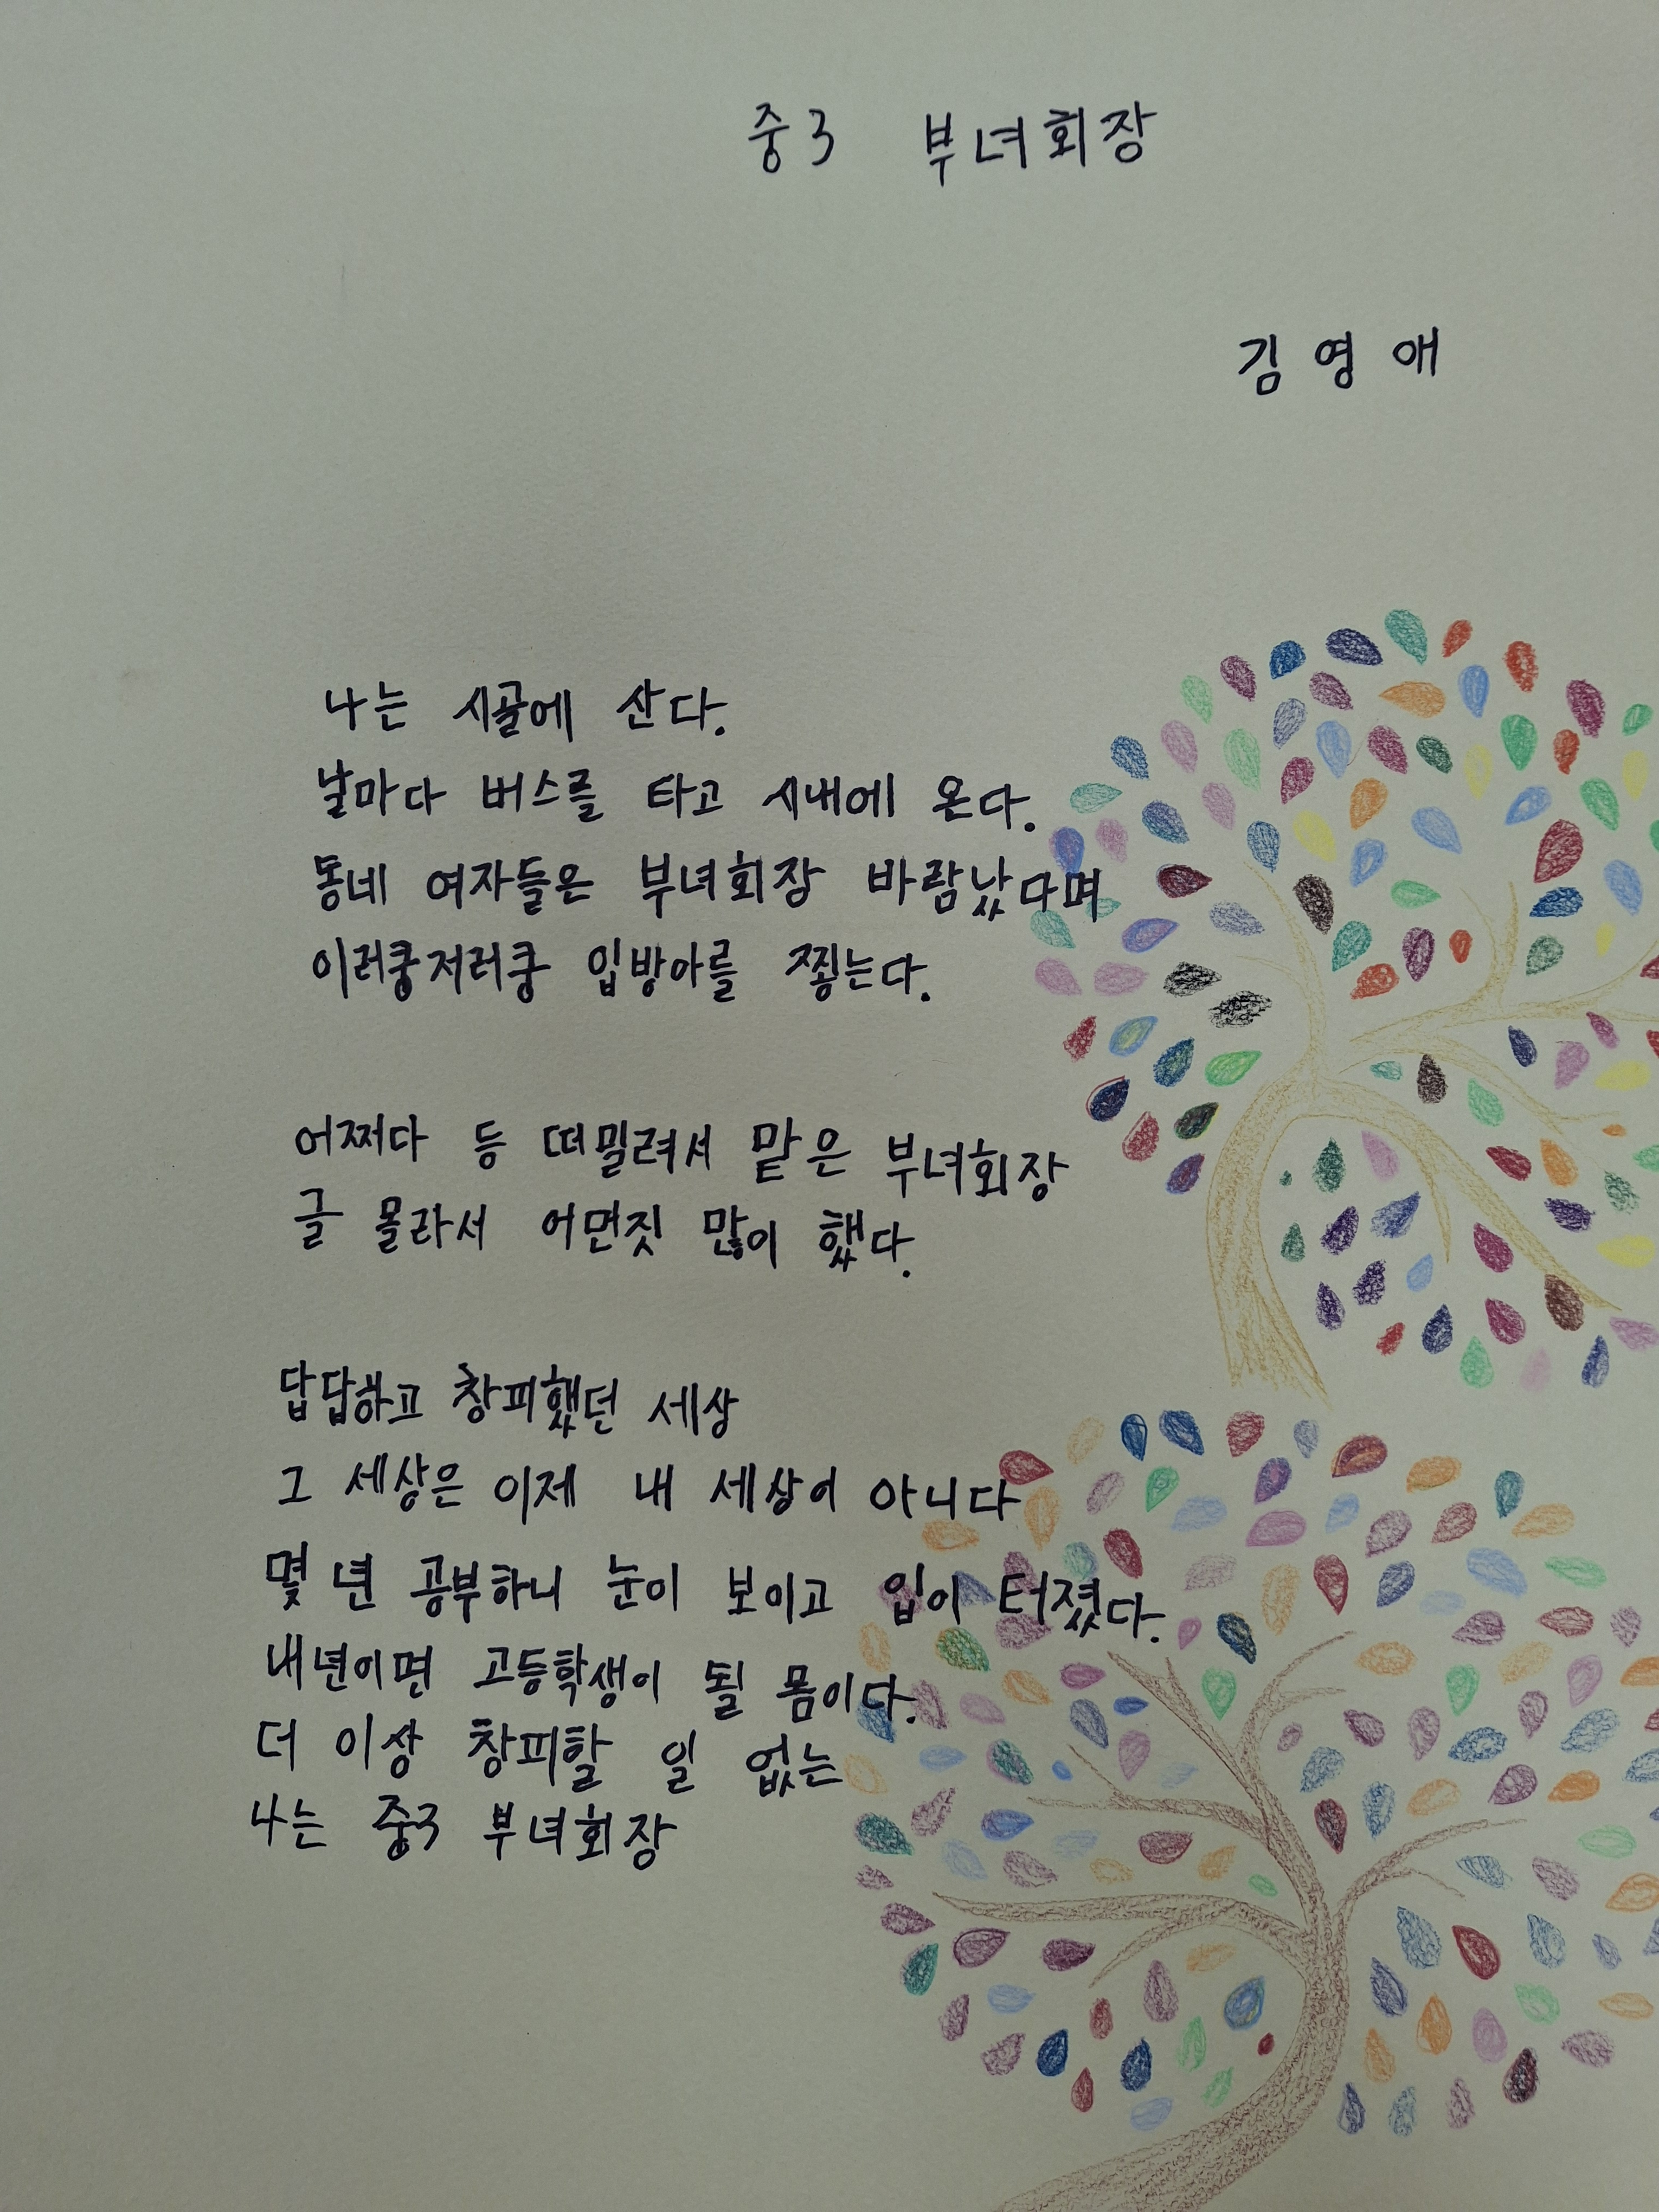 중3 부녀회장
김영애
나는 시골에 산다.
날마다 버스를 타고 시내에 온다.
동네 여자들은 부녀회장 바람났다며
이러쿵저러쿵 입방아를 찧는다.
어쩌다 등 떠밀려서 맡은 부녀회장
글 몰라서 어먼짓 많이 했다.
답답하고 창피했던 세상
그 세상은 이제 내 세상이 아니다
몇 년 공부하니 눈이 보이고 입이 터졌다.
내년이면 고등학생이 될 몸이다.
더 이상 창피할 일 없는
나는 중3 부녀회장